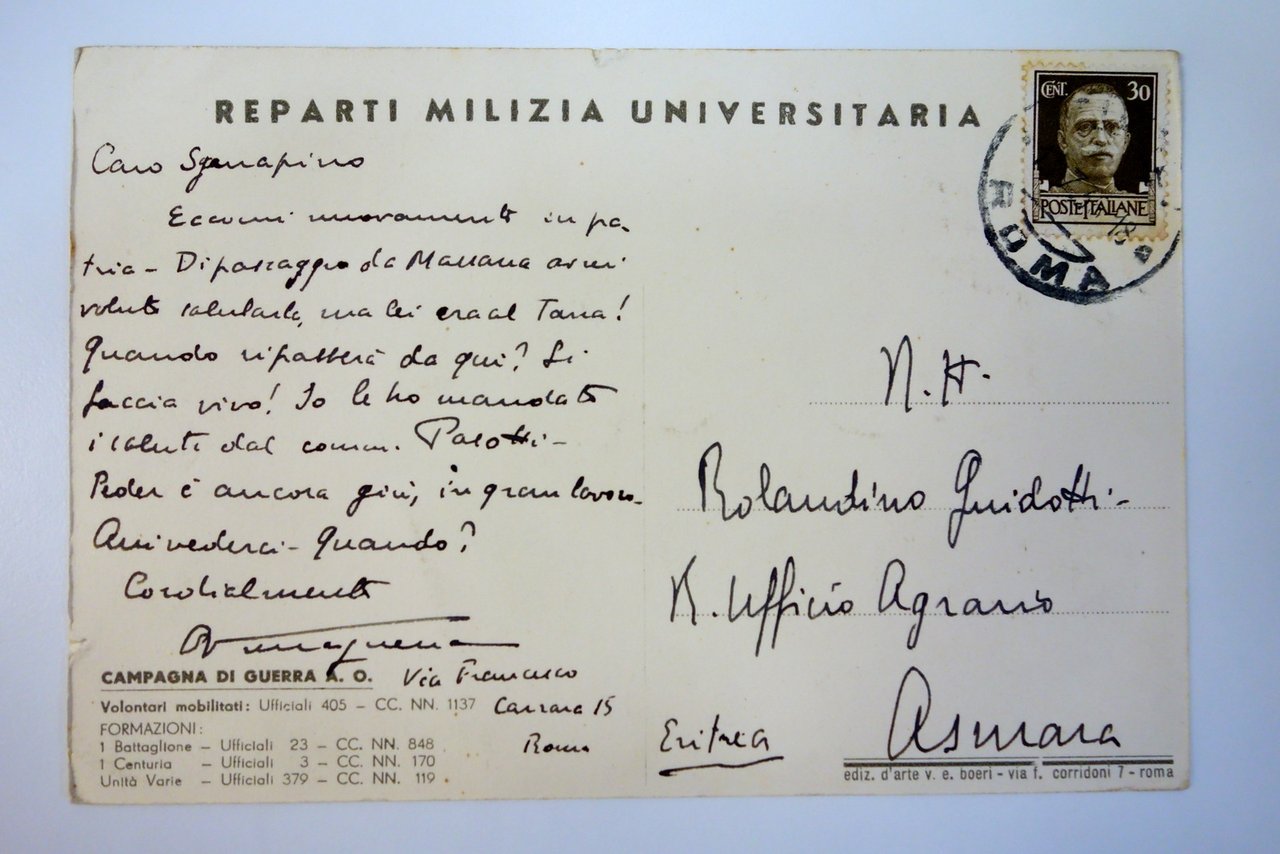 REPARTI MILIZIA UNIVERSITARIA
CENT. 30
POSTE ITALIANE
ROMA
Caro
Eccomi nuovamente in pa-
tria - Di passaggio da Massaua avrei
voluto salutarla, ma lei era al Tana!
Quando ripasserà da qui? Si
faccia vivo! Io le ho mandato
i saluti dal comm. Pasotti -
Peder è ancora giù, in gran lavoro -
Arrivederci - Quando?
Cordialmente
Via Francesco
Carrara 15
Roma
CAMPAGNA DI GUERRA A. O.
Volontari mobilitati: Ufficiali 405 - CC. NN. 1137
FORMAZIONI:
1 Battaglione - Ufficiali 23 - CC. NN. 848
1 Centuria - Ufficiali 3 - CC. NN. 170
Unità Varie - Ufficiali 379 - CC. NN. 119
N. H.
Rolandino Guidotti -
R. Ufficio Agrario
Asmara
Eritrea
ediz. d'arte v. e. boeri - via f. corridoni 7 - roma